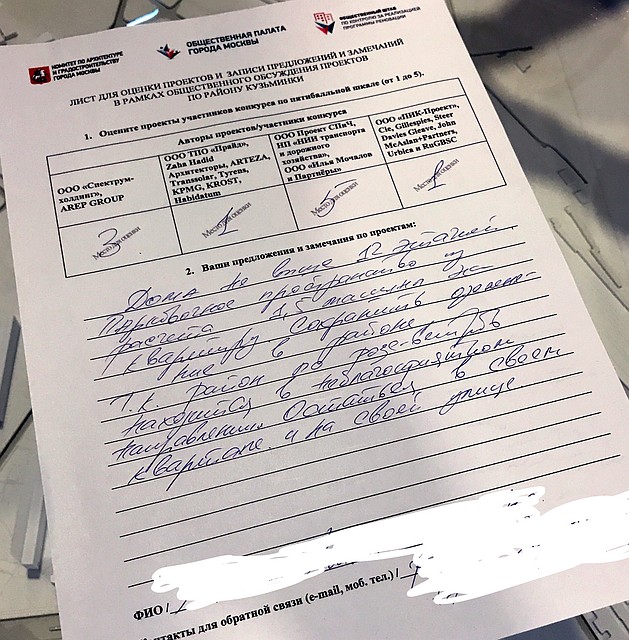 КОМИТЕТ ПО АРХИТЕКТУРЕ
И ГРАДОСТРОИТЕЛЬСТВУ
ГОРОДА МОСКВЫ
ОБЩЕСТВЕННАЯ ПАЛАТА
ГОРОДА МОСКВЫ
ОБЩЕСТВЕННЫЙ ШТАБ
ПО КОНТРОЛЮ ЗА РЕАЛИЗАЦИЕЙ
ПРОГРАММЫ РЕНОВАЦИИ
ЛИСТ ДЛЯ ОЦЕНКИ ПРОЕКТОВ И ЗАПИСИ ПРЕДЛОЖЕНИЙ И ЗАМЕЧАНИЙ
В РАМКАХ ОБЩЕСТВЕННОГО ОБСУЖДЕНИЯ ПРОЕКТОВ
ПО РАЙОНУ КУЗЬМИНКИ
1. Оцените проекты участников конкурса по пятибалльной шкале (от 1 до 5).
Авторы проектов/участники конкурса
ООО «Спектрум-
холдинг»,
AREP GROUP
ООО ТПО «Прайд»,
Zaha Hadid
Архитекторы, ARTEZA,
Transsolar, Tyrens,
KPMG, KROST,
Habidatum
ООО Проект СПиЧ,
НП «НИИ транспорта
и дорожного
хозяйства»,
ООО «Илья Мочалов
и Партнёры»
ООО «ПИК-Проект»,
Cie, Gillespies, Steer
Davies Gleave, John
McAslan+Partners,
Urbica и RuGBSC
Место для оценки
3
Место для оценки
1
Место для оценки
5
Место для оценки
1
2. Ваши предложения и замечания по проектам:
Дома не выше 12 этажей
Парковочное пространство из
расчета 1,5 машины на
квартиру. Сохранить
в районе
Т.к. район по розе-ветров
находится в неблагоприятном
направлении. Остаться в своем
квартале и на своей улице.
ФИО /
Контакты для обратной связи (e-mail, моб. тел.) /